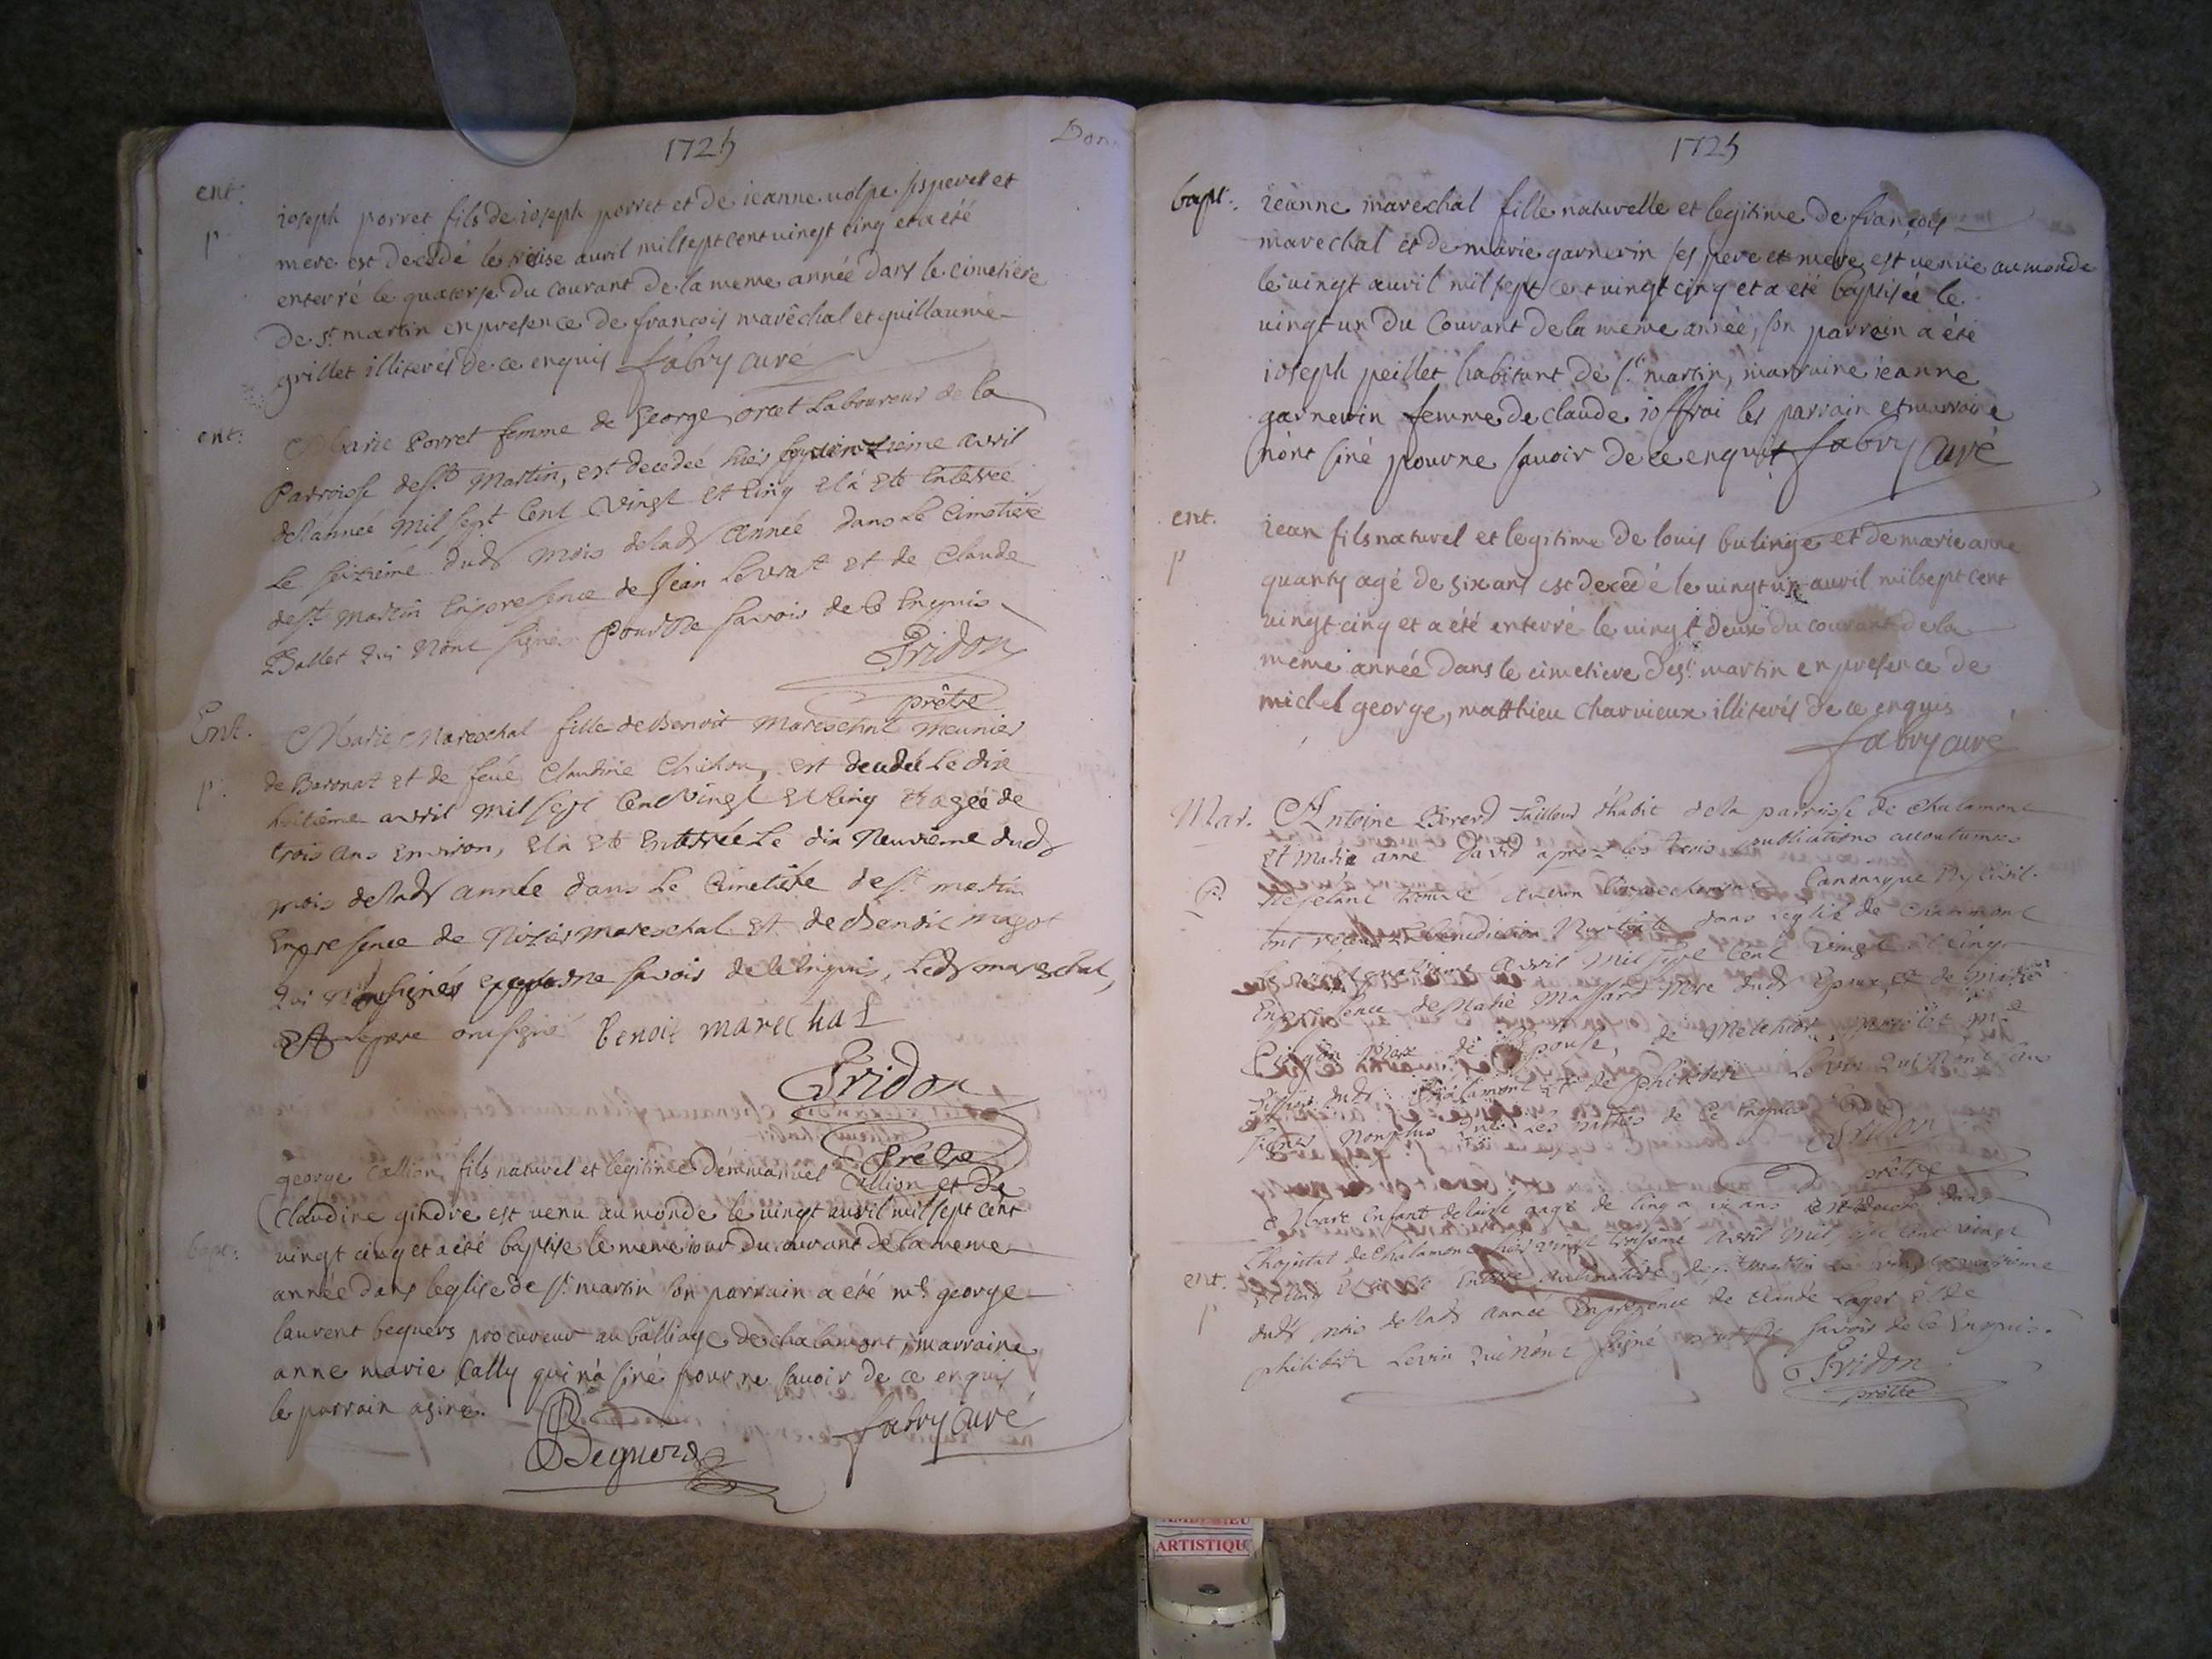 1725
Don
ent:
p
ioseph porret fils de ioseph porret et de ieanne uolpe ses pere et
mere est decedé le treise auril mil sept cent uingt cinq et a eté
enterré le quatorse du courant de la meme année dans le cimetiere
de st martin en presence de françois maréchal et guillaume
grillet illiterés de ce enquis fabry curé
ent:
Marie Porret femme de George orcet Laboureur de la
Parroisse de st Martin, est decedeé hier quinzieme avril
de l'anneé Mil sept Cent Vingt et Cinq et a eté Enterreé
Le seizieme dudt mois de ladt année dans Le Cimetiere
de st Martin En presence de Jean Levrat et de Claude
Ballet qui N'ont signes Pour Ne savoir de Ce Enquis
Pridon
prêtre
Ent.
p.
Marie Mareschal fille de Benoit Mareschal Meunier
de Baronat et de feüe Claudine Chichon, est decedeé Le dix
huitiéme avril Mil sept Cent Vingt et Cinq ageé de
trois ans Environ, et a eté Enterreé Le dix Neuviéme dudt
mois de ladt année dans Le Cimetiere de st martin
En presence de Nizier Mareschal et de Benoit magot
qui N'ont signés Ne savoir de Ce Enquis, Ledt mareschal,
Le pere ont signé benoit marechal
Pridon
Prêtre
bapt:
george callion fils naturel et legitime d'emmanuel Callion et de
Claudine gindre est uenu au monde le uingt auril mil sept cent
uingt cinq et a été baptise le meme iour du courant de la meme
année dans leglise de st martin son parrain a été mr george
laurent beguers procureur au balliage de chalamont, marraine
anne marie Cally qui n'a siné pour ne sauoir de ce enquis
le parrain a siné.
Beguers
fabry curé
1725
bapt:
ieanne marechal fille naturelle et legitime de françois
marechal et de marie garnerin ses pere et mere est uenüe au monde
le uingt auril mil sept cent uingt cinq et a eté baptisée le
uingt un du Courant de la meme année, son parrain a été
ioseph peillet habitant de st martin, marraine ieanne
garnerin femme de claude ioffrai les parrain et marraine
n'ont siné pour ne sauoir de ce enquis fabry curé
ent.
p
iean fils naturel et legitime de louis bulinge et de marie anne
quanty agé de six ans est decédé le uingt un auril mil sept cent
uingt cinq et a été enterré le uingt deux du courant de la
meme année dans le cimetiere de st martin en presence de
michel george, matthieu charvieux illiterés de ce enquis
fabry curé
Mar.
P.
Antoine Bererd Tailleur d'habit de la parroisse de Chalamont
et Marie anne David aprez les trois publications accoutumées
Ne s'etant trouvé aucun Empechement Canonique Ny Civil.
ont reçeu La benediction Nuptiale dans l'eglise de Chalamont
Le vingt quatrieme Avril Mil sept Cent Vingt et Cinq
En presence de Massard Mere dudt Epoux, et de
de l'Epouse, de Melchior
dudt Chalamont et de philibert Levrin qui N'ont sçu
signer Non plus que Les parties de Ce Enquis
Pridon
prêtre
ent.
p
Marc Enfant delaissé aagé de Cinq a six ans est decedé dans
L'hopital de Chalamont hier vingt troisiéme avril Mil sept Cent vingt
et Cinq Et a eté Enterré au Cimetiere de st Martin Le vingt quatrieme
dudt mois de ladt année En presence de Claude Lager et de
philibert Levrin qui N'ont signé pour Ne savoir de Ce Enquis.
Pridon
prêtre
ARTISTIQU